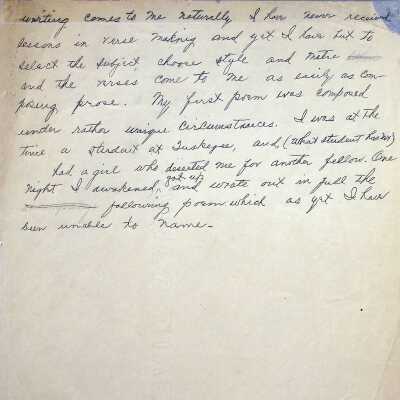 writing comes to me naturally I have never received
lessons in verse making and yet I have but to
select the subject choose style and metre
and the verses come to me as easily as com-
posing prose. My first poem was composed
under rather unique circumstances. I was at the
time a student at Tuskegee, and, (what student hasn't)
had a girl who deserted me for another fellow. One
night I awakened, got up, and wrote out in full the
following poem which as yet I have
been unable to name.